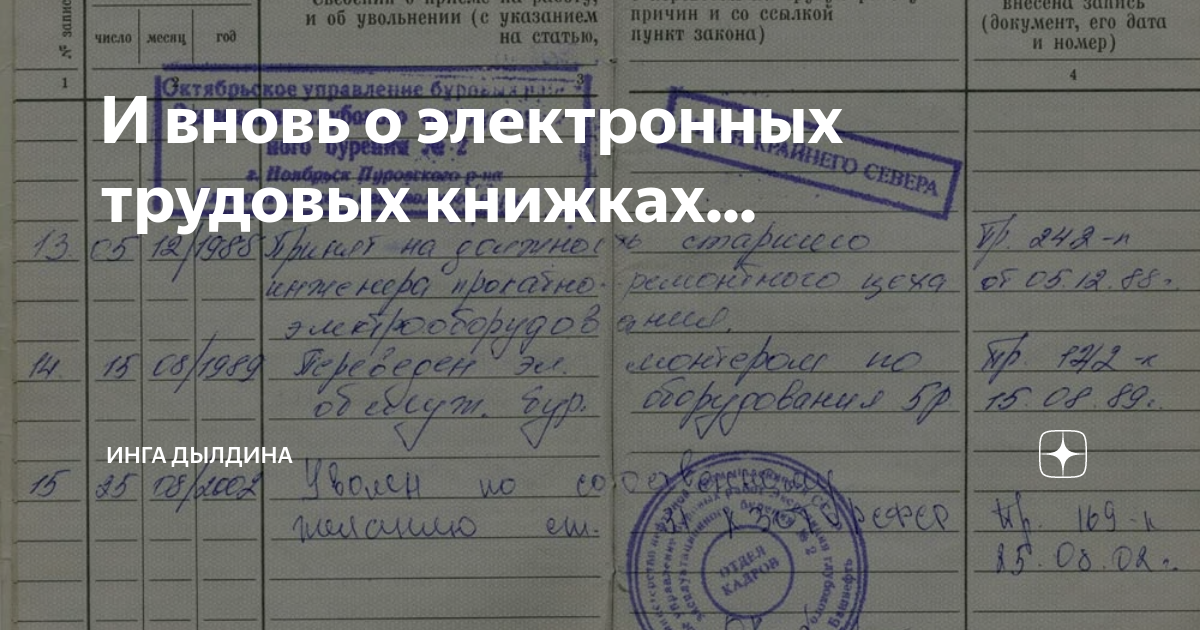 № запис
число месяц год
и об увольнении (с указанием
на статью,
причин и со ссылкой
пункт закона)
внесена запись
(документ, его дата
и номер)
1 2 3 4
Октябрьское управление буровых
ного бурения № 2
г. Ноябрьск Пуровского р-на
КРАЙНЕГО СЕВЕРА
И вновь о электронных
трудовых книжках...
13. 05 12/1988 Принят на должность старшего Пр. 242-п
инженера прокатно-ремонтного цеха от 05.12.88г.
электрооборудования.
14. 15 08/1989 Переведен эл. монтером по Пр. 172-к
обслуж. бур. оборудования 5р. 15.08.89г.
ИНГА ДЫЛДИНА
15 25 08/2002 Уволен по собственному
желанию ст. Пр. 169-к
25.08.02г.
ОТДЕЛ
КАДРОВ
Башнефть